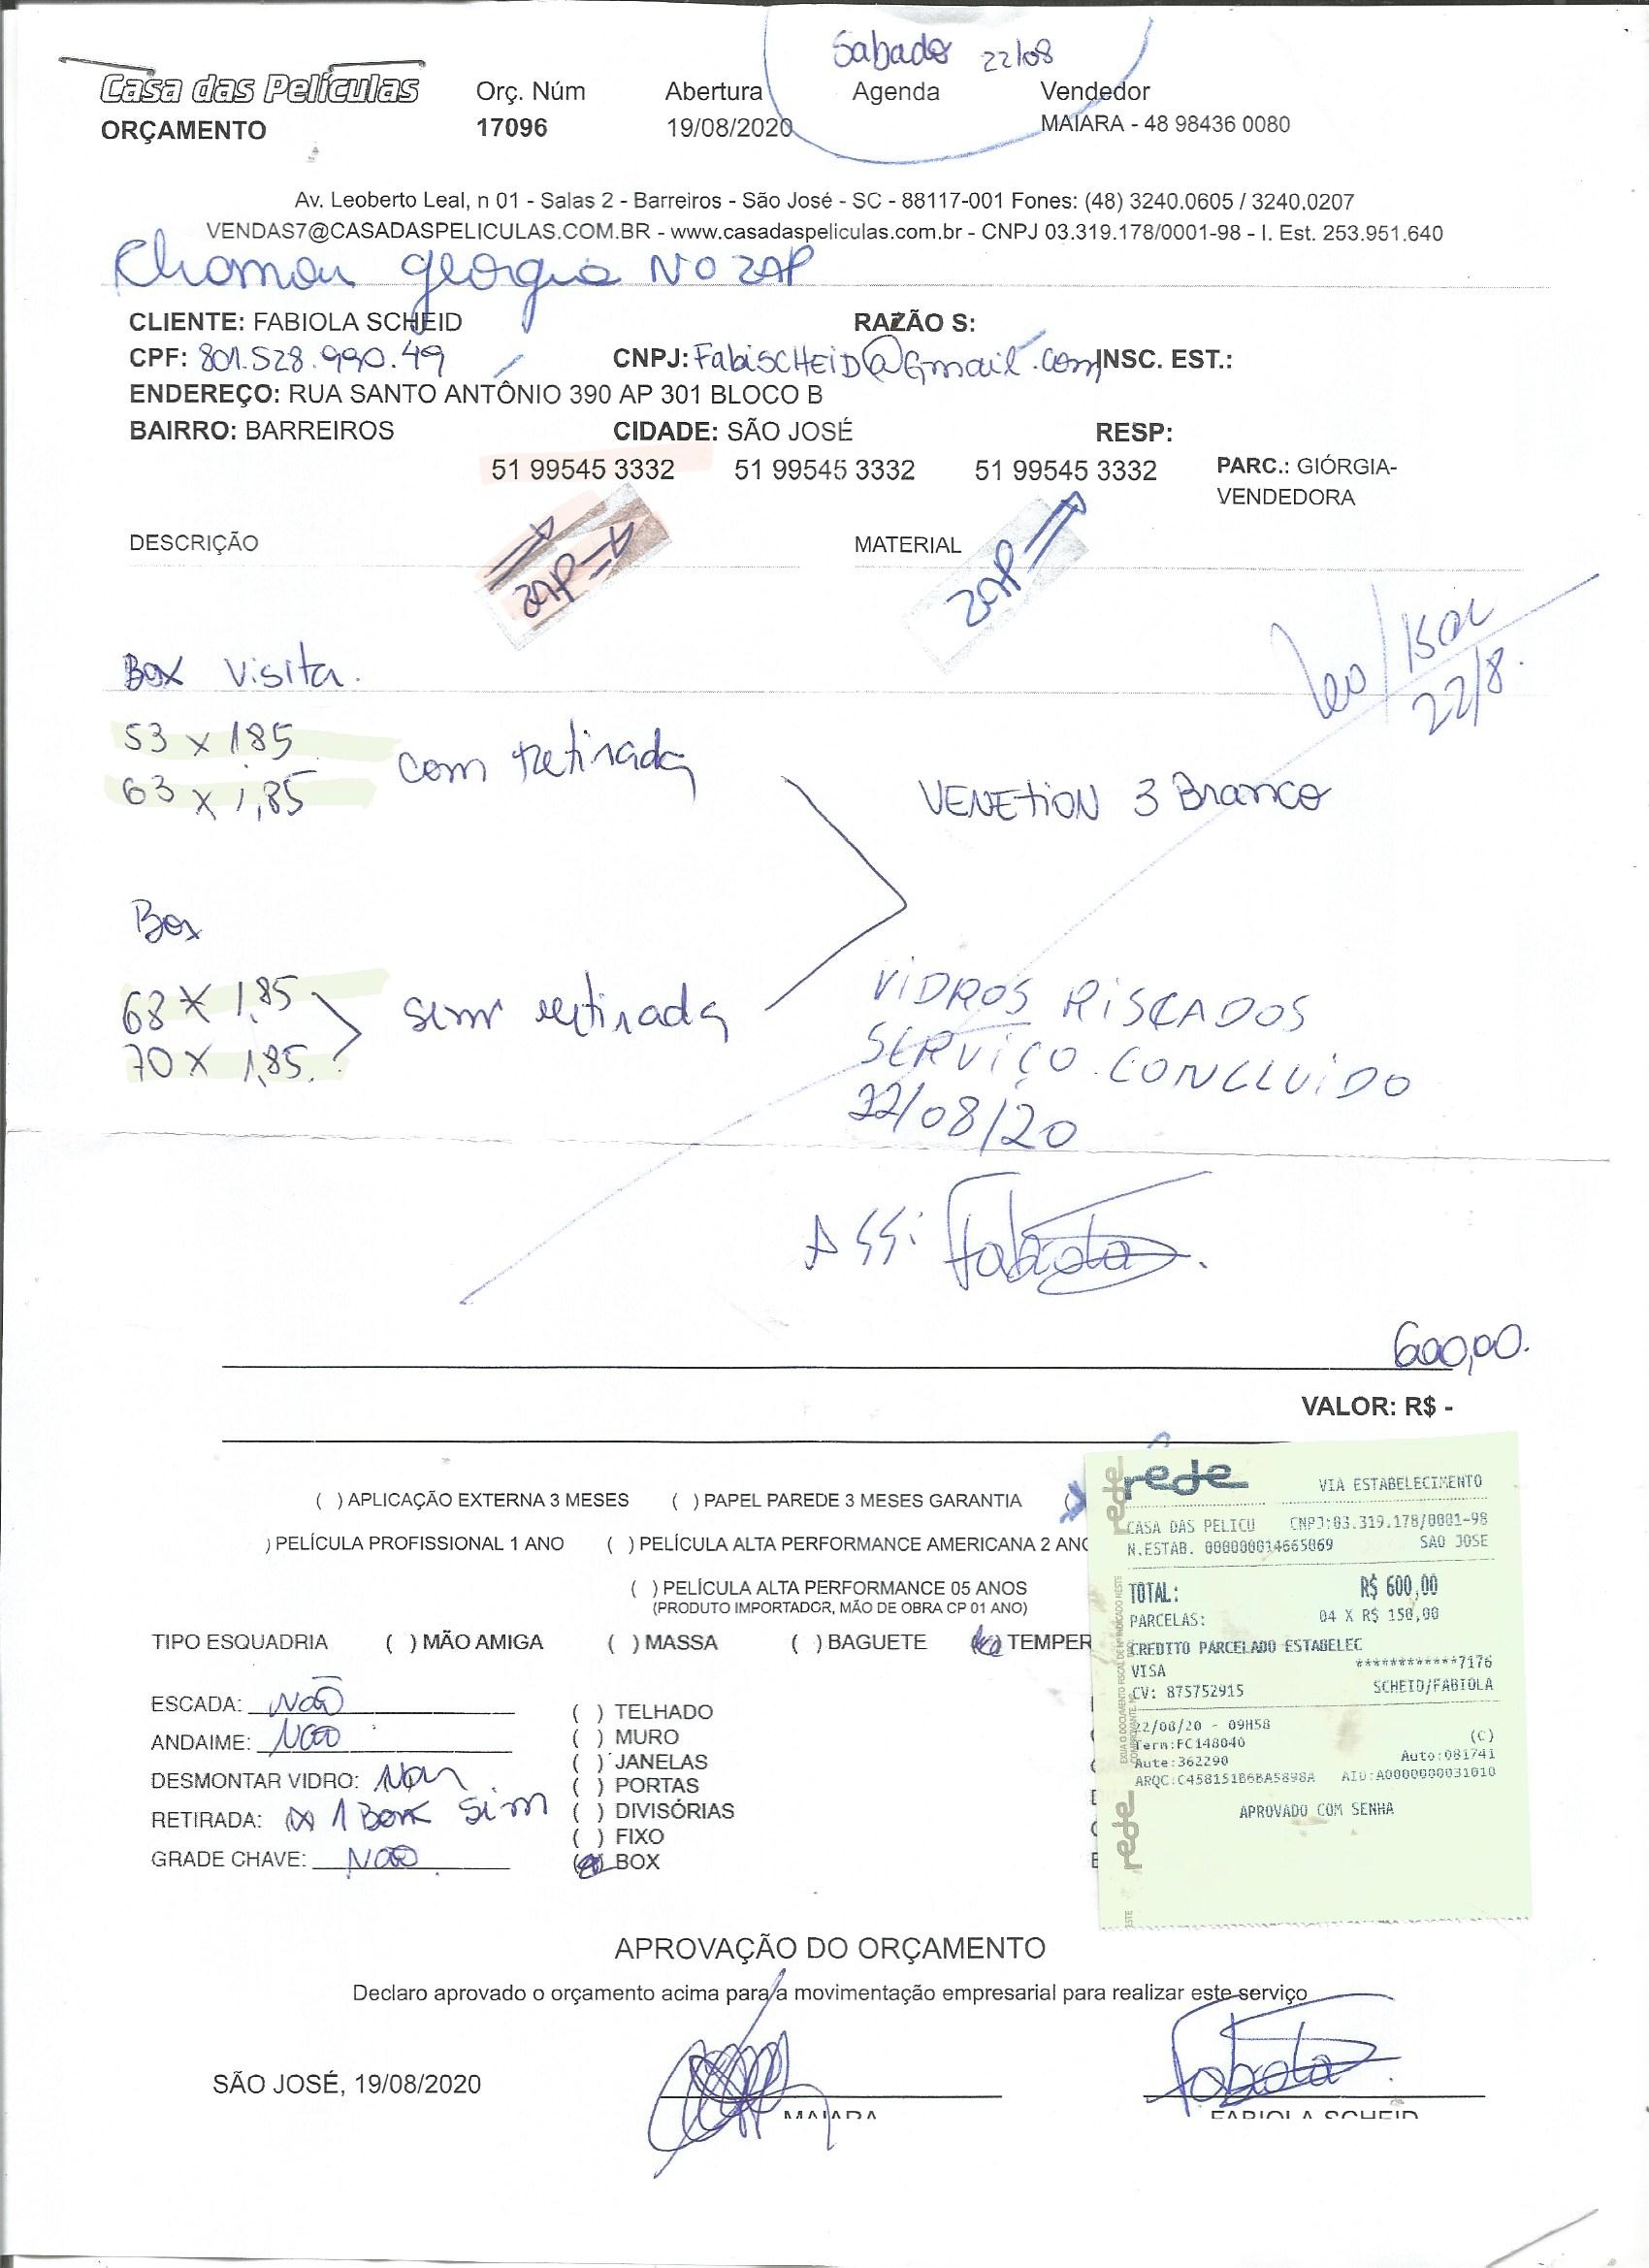 Sabado 22/08
Casa das Películas Orç. Núm Abertura Agenda Vendedor
ORÇAMENTO 17096 19/08/2020 MAIARA - 48 98436 0080
Av. Leoberto Leal, n 01 - Salas 2 - Barreiros - São José - SC - 88117-001 Fones: (48) 3240.0605 / 3240.0207
VENDAS7@CASADASPELICULAS.COM.BR - www.casadaspeliculas.com.br - CNPJ 03.319.178/0001-98 - I. Est. 253.951.640
georgia NO ZAP
CLIENTE: FABIOLA SCHEID RAZÃO S:
CPF: 801.528.990.49 CNPJ: FabiSCHEiD@Gmail.com INSC. EST.:
ENDEREÇO: RUA SANTO ANTÔNIO 390 AP 301 BLOCO B
BAIRRO: BARREIROS CIDADE: SÃO JOSÉ RESP:
51 99545 3332 51 99545 3332 51 99545 3332 PARC.: GIÓRGIA-
VENDEDORA
DESCRIÇÃO MATERIAL
ZAP ZAP
leo / Isac
22/8.
Box Visita.
53 x 1.85
63 x 1,85
com retirada
VENEtiON 3 Branco
Box
68 x 1.85
70 x 1,85.
sem retirada
ViDROS RiSCADOS
SERViÇO CONCLUiDO
22/08/20
ASS: Fabiola
600,00.
VALOR: R$ -
( ) APLICAÇÃO EXTERNA 3 MESES ( ) PAPEL PAREDE 3 MESES GARANTIA (X
) PELÍCULA PROFISSIONAL 1 ANO ( ) PELÍCULA ALTA PERFORMANCE AMERICANA 2 ANO
( ) PELÍCULA ALTA PERFORMANCE 05 ANOS
(PRODUTO IMPORTADOR, MÃO DE OBRA CP 01 ANO)
TIPO ESQUADRIA ( ) MÃO AMIGA ( ) MASSA ( ) BAGUETE (x) TEMPER
ESCADA: NÃO
ANDAIME: NÃO
DESMONTAR VIDRO: Não
RETIRADA: 1 Box Sim
GRADE CHAVE: NÃO
( ) TELHADO
( ) MURO
( ) JANELAS
( ) PORTAS
( ) DIVISÓRIAS
( ) FIXO
(x) BOX
rede
VIA ESTABELECIMENTO
CASA DAS PELICU CNPJ:03.319.178/0001-98
N.ESTAB. 000000014665069 SAO JOSE
TOTAL: R$ 600,00
PARCELAS: 04 X R$ 150,00
CREDITO PARCELADO ESTABELEC
VISA ************7176
CV: 875752915 SCHEID/FABIOLA
22/08/20 - 09H58
Term:FC148040 (C)
Aute:362290 Auto:081741
ARQC:C458151B6BA5898A AID:A0000000031010
APROVADO COM SENHA
rede
rede
APROVAÇÃO DO ORÇAMENTO
Declaro aprovado o orçamento acima para a movimentação empresarial para realizar este serviço
SÃO JOSÉ, 19/08/2020
Fabiola
MAIARA FABIOLA SCHEID